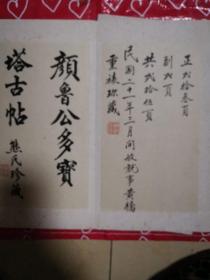 正弍拾叁頁
副弍頁
共弍拾伍頁
民國二十一年三月間就事黃橋
重裱珍藏
顏魯公多寶
塔古帖
熊氏珍藏